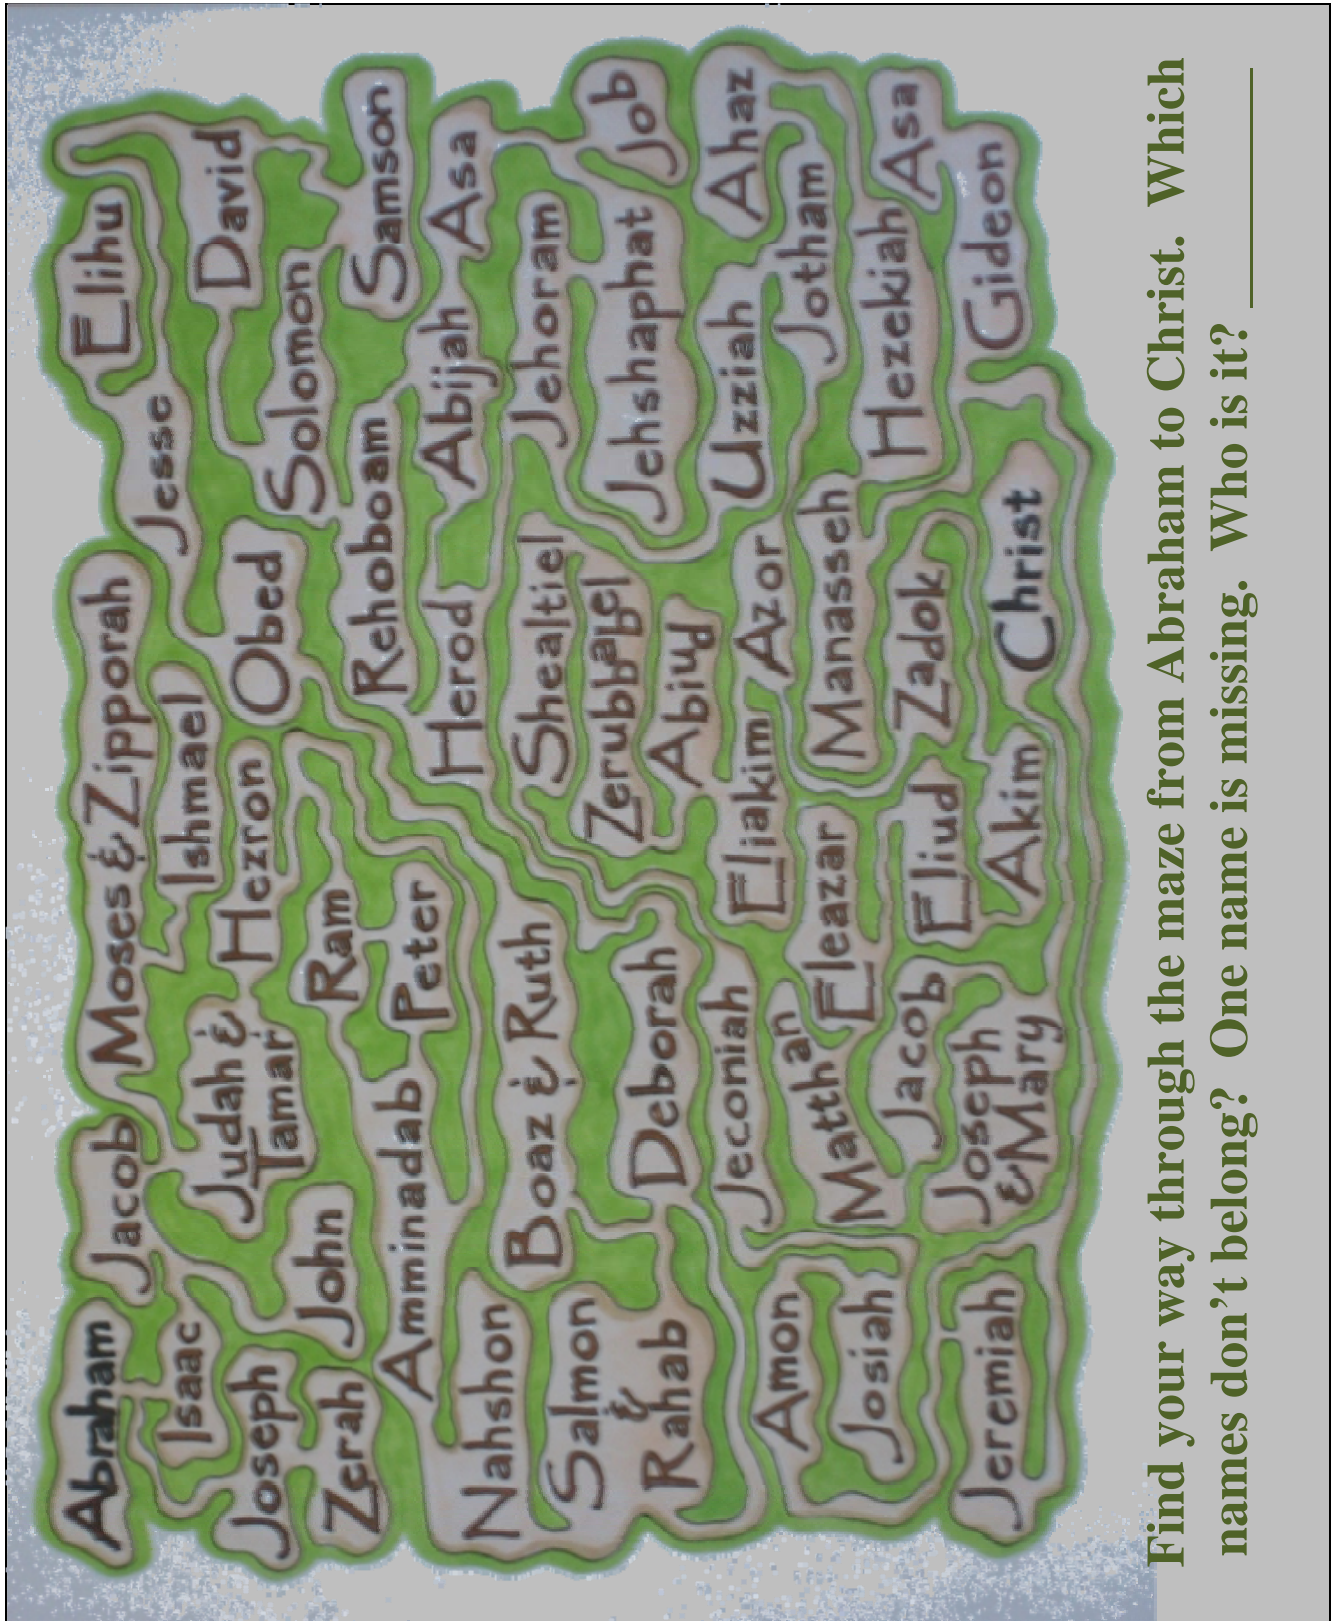 Abraham
Jacob
Moses & Zipporah
Elihu
Isaac
Ishmael
Jesse
David
Joseph
Judah &
Tamar
Hezron
Obed
Solomon
Zerah
John
Ram
Rehoboam
Samson
Amminadab
Peter
Herod
Abijah
Asa
Nahshon
Boaz & Ruth
Shealtiel
Jehoram
Salmon
&
Rahab
Deborah
Zerubbabel
Abiud
Jehshaphat
Job
Amon
Jeconiah
Eliakim
Azor
Uzziah
Ahaz
Josiah
Matthan
Eleazar
Manasseh
Jotham
Jacob
Eliud
Zadok
Hezekiah
Asa
Jeremiah
Joseph
& Mary
Akim
Christ
Gideon
Find your way through the maze from Abraham to Christ. Which
names don't belong? One name is missing. Who is it? __________